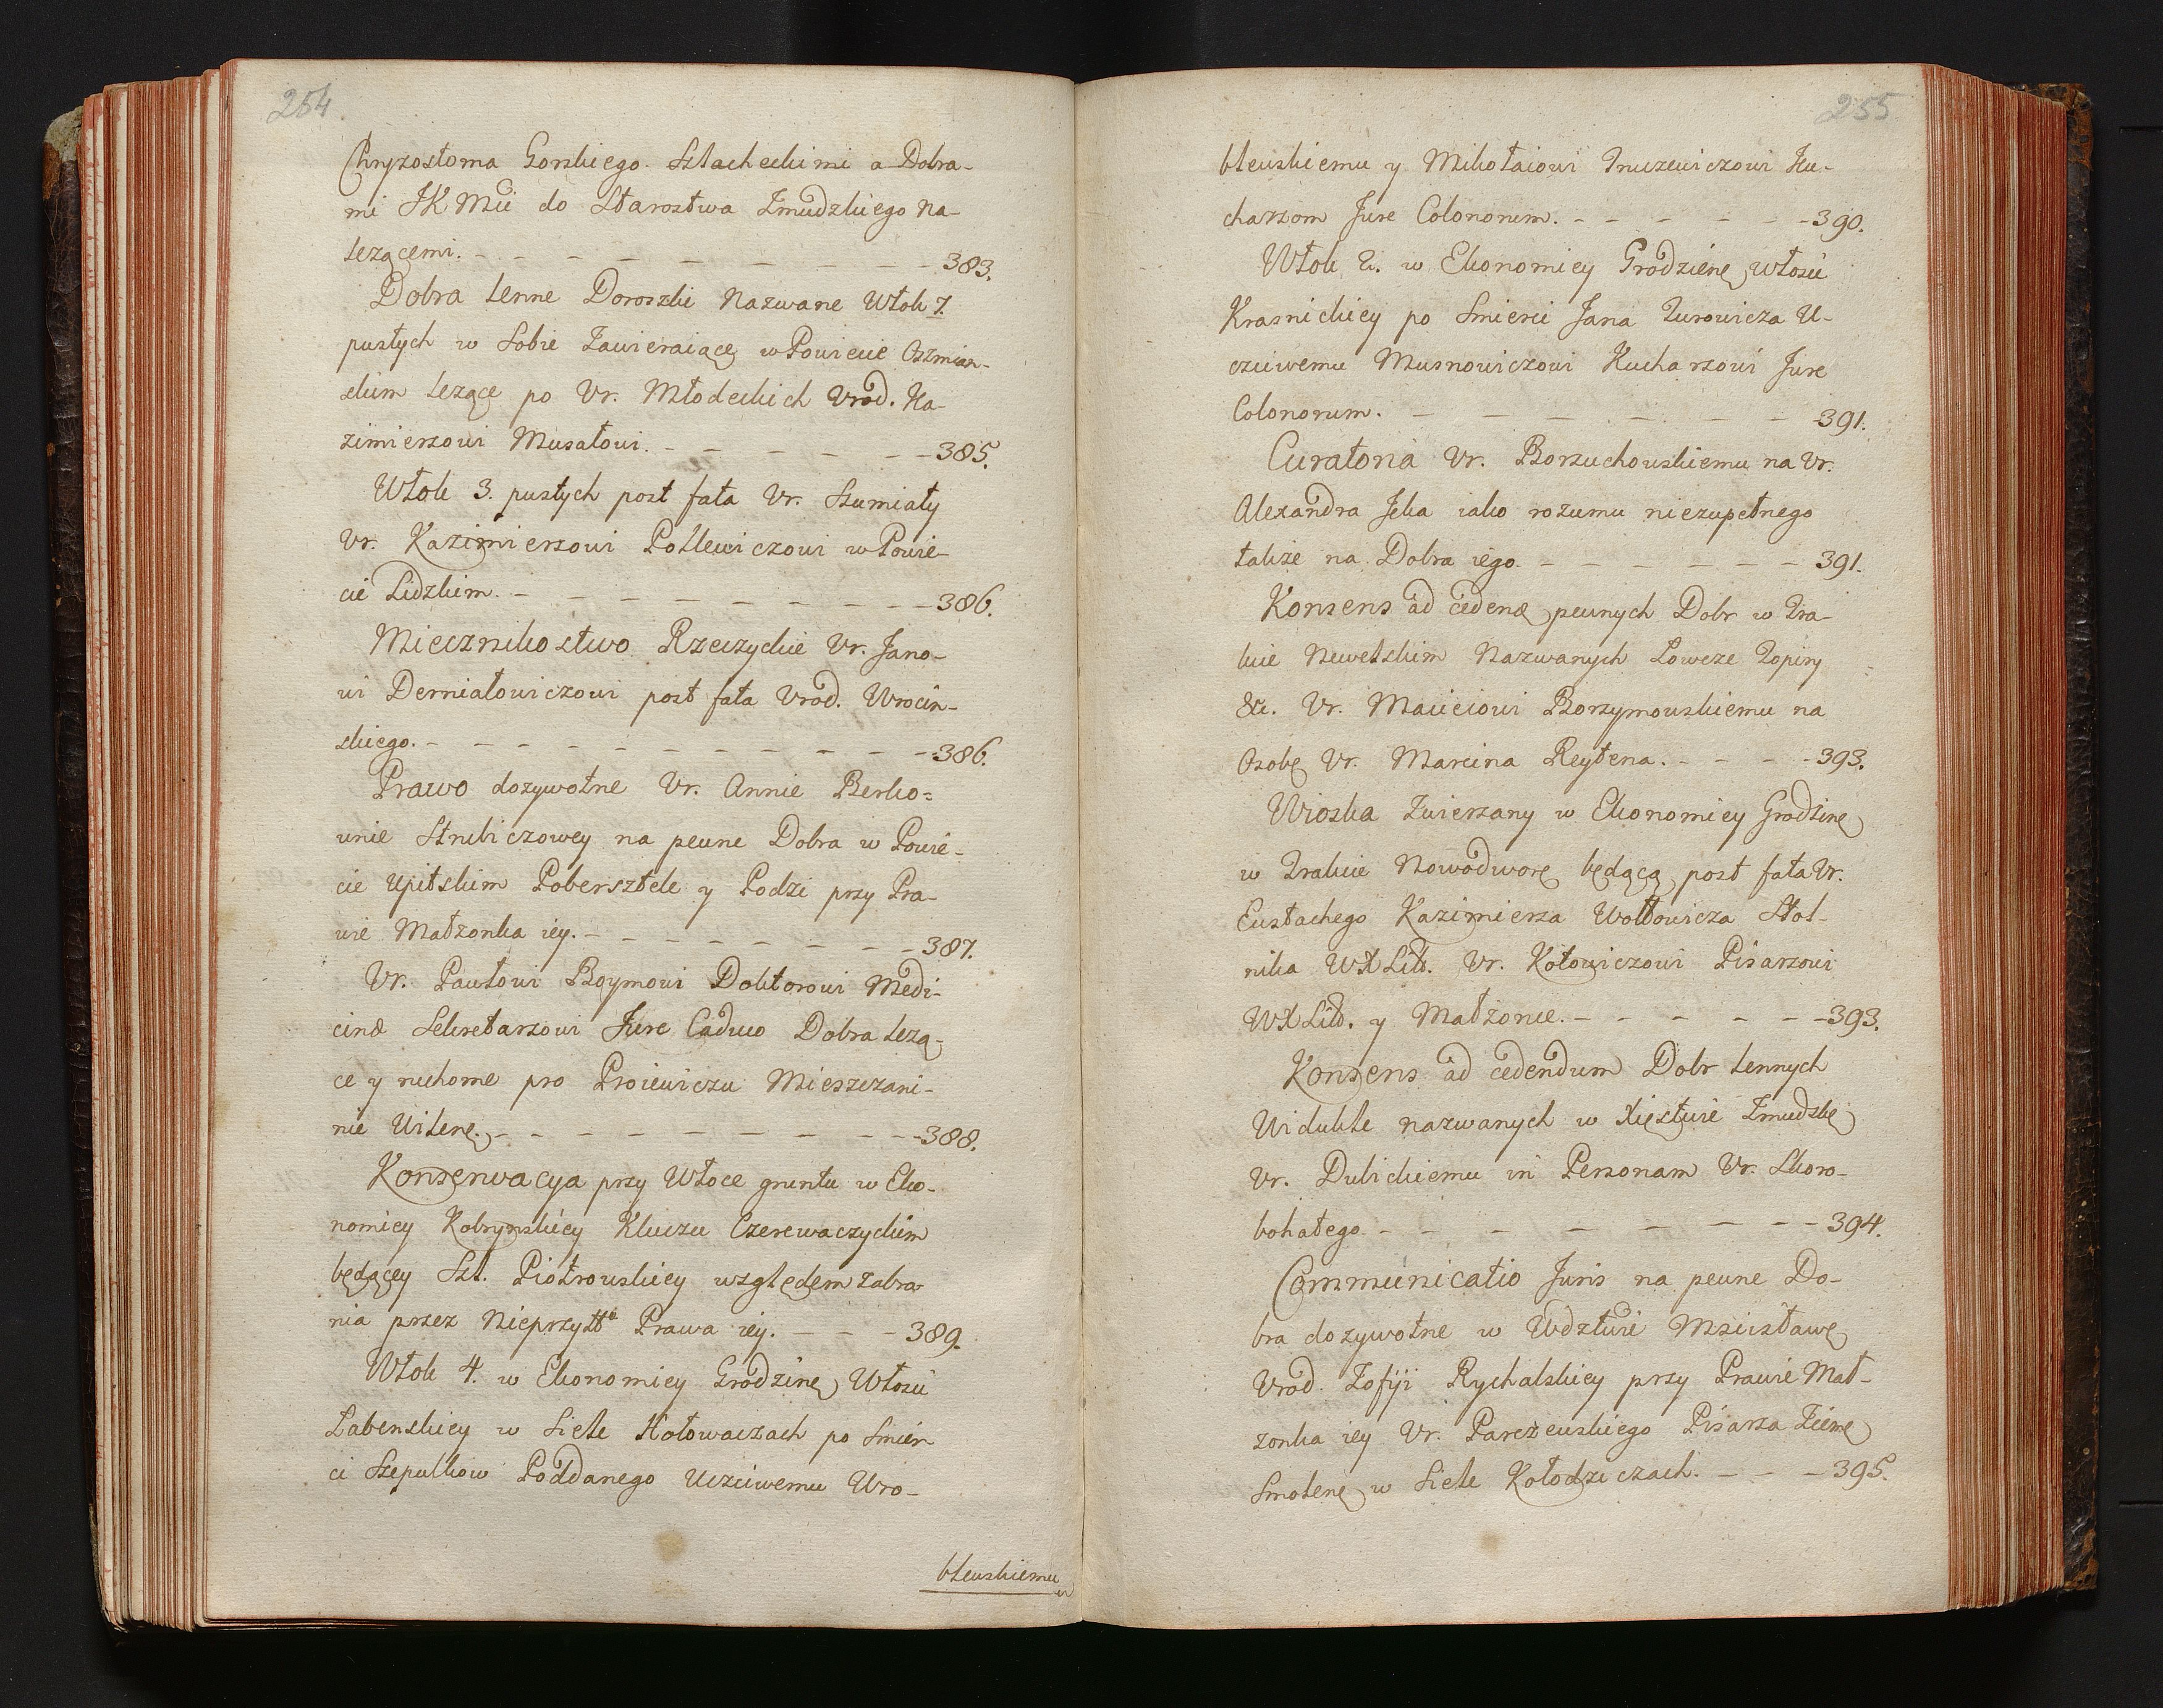 254.
Chryzostoma Gorskiego Szlacheckimi a Dobra-
mi JKMci do Starostwa Zmudzkiego na-
lezącemi. - - - - - - - - - 383.
Dobra lenne Doroszki Nazwane Włok 7.
pustych w Sobie Zawieraiące w Powiecie Oszmian-
skim lezące po Ur. Młodeckich Urod. Ka-
zimierzowi Musałowi. - - - - - - 385.
Włok 3. pustych post fata Ur. Szumiały
Ur. Kazimierzowi Pollewiczowi w Powie-
cie Lidzkim. - - - - - - - - 386.
Miecznikostwo Rzeczyckie Ur. Jano-
wi Dermiałowiczowi post fata Urod. Wrocin-
skiego. - - - - - - - - - - 386.
Prawo dozywotne Ur. Annie Berko-
wnie Strubiczowey na pewne Dobra w Powie-
cie Upitskim Pobersztele y Podzi przy Pra-
wie Małzonka iey. - - - - - - - 387.
Ur. Pawłowi Boymowi Doktorowi Medi-
cinæ Sekretarzowi Jure Caduco Dobra lezą-
ce y ruchome pro Proiewiczu Mieszczani-
nie Wilene. - - - - - - - - - 388.
Konserwacya przy Włoce gruntu w Eko-
nomiey Kobrynskiey Kluczu Czerewaczyckim
będącey Szl. Piotrowskiey względem zabra-
nia przez Nieprzylla Prawa iey. - - - 389.
Włok 4. w Ekonomiey Grodzine Włosci
Łabenskiey w Siele Hołowaczach po Smier-
ci Szepulkow Poddanego Uczciwemu Wro-
blewskiemu
255
blewskiemu y Mikołaiowi Inuzewiczowi Ku-
charzom Jure Colonorum. - - - - - 390.
Włok 2. w Ekonomiey Grodziene Włosci
Krasnickiey po Smierci Jana Zurowicza U-
czciwemu Musnowiczowi Kucharzowi Jure
Colonorum. - - - - - - - 391.
Curatoria Ur. Borzuchowskiemu na Ur.
Alexandra Jelca iako rozumu niezupełnego
także na Dobra iego. - - - - - - 391.
Konsens ad cedendæ pewnych Dobr w Tra-
kcie Newelskim Nazwanych Łowcze Topiry
&c. Ur. Maciciowi Borzymowskiemu na
Osobę Ur. Marcina Reytena. - - - - 393.
Wioska Zwierzany w Ekonomiey Grodzine
w Trakcie Nowodwore będącą post fata Ur.
Eustachego Kazimierza Wołłowicza Stol-
nika WXLitt. Ur. Kotowiczowi Pisarzowi
WXLitt. y Małzonce. - - - - - - 393.
Konsens ad cedendum Dobr lennych
Widukle nazwanych w Xięstwie Zmudzke
Ur. Dubickiemu in Personam Ur. Skoro-
bohatego. - - - - - - - - 394.
Communicatio Juris na pewne Do-
bra dozywotne w Wdztwie Mscisławe
Urod. Zofiji Rychalskiey przy Prawie Mał-
zonka iey Ur. Parczewskiego Pisarza Zieme
Smolene w Siele Kołodziczach. - - - 395.